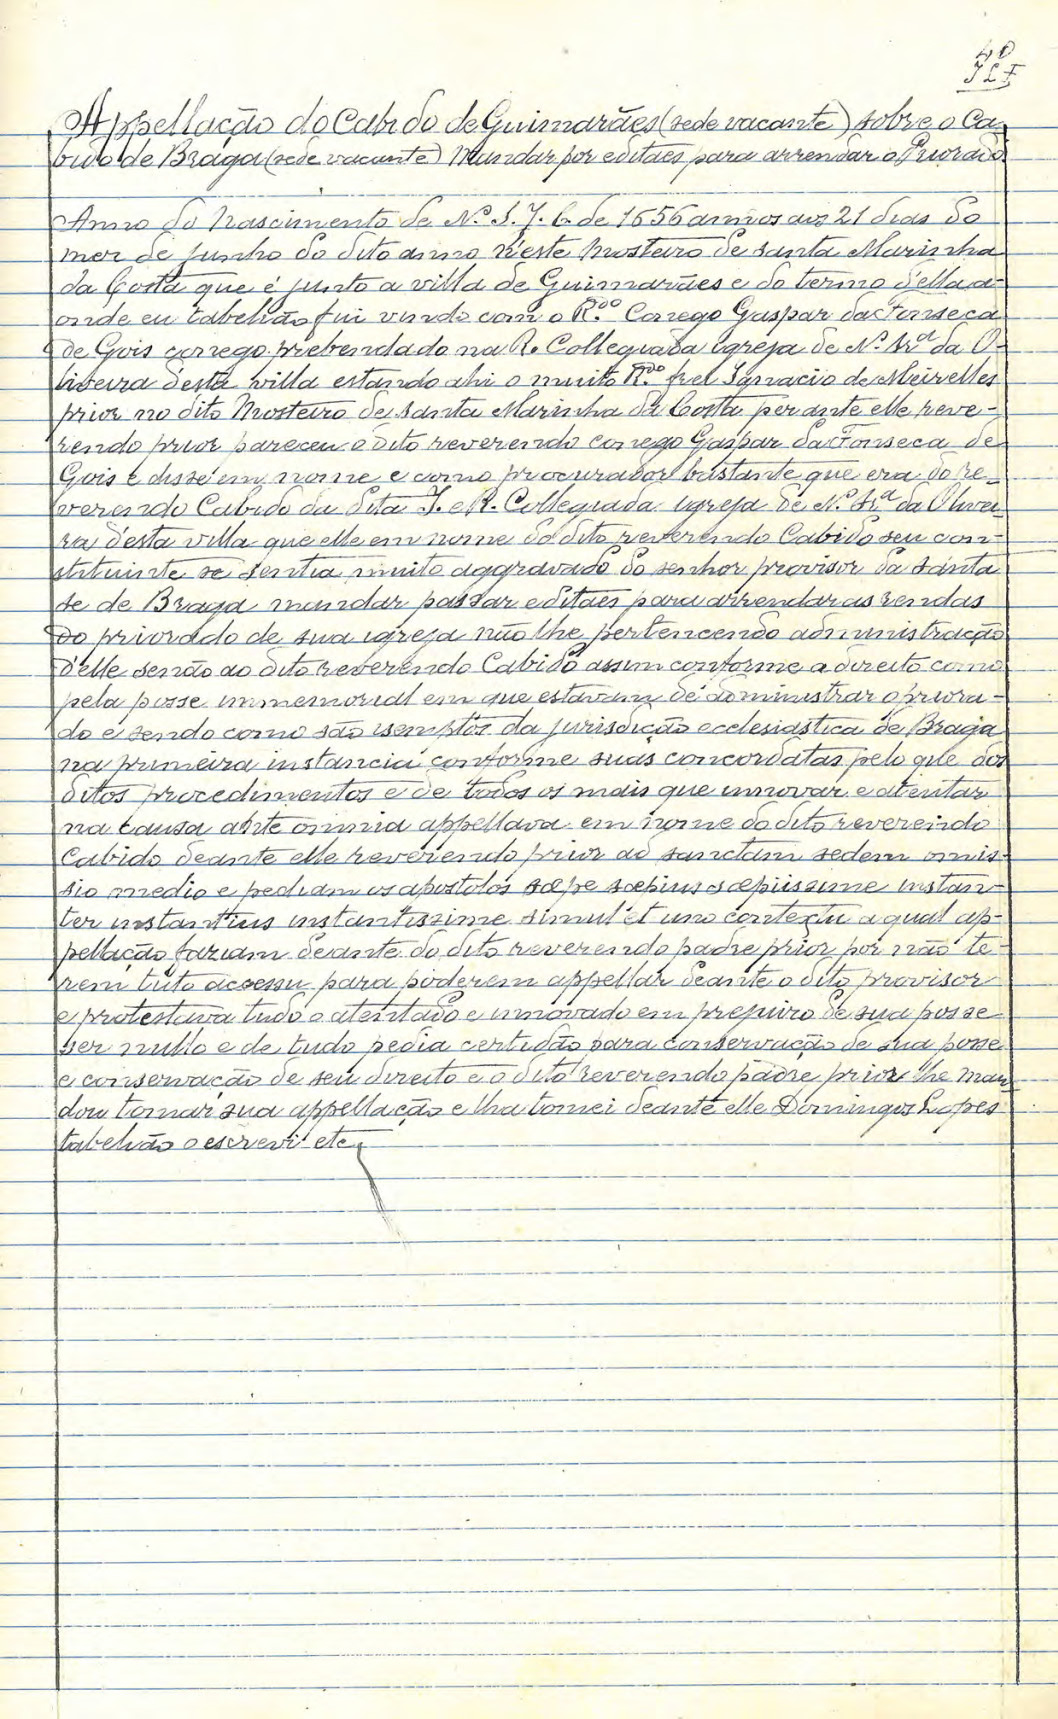 40
JLF
Appellação do Cabido de Guimarães (sede vacante) sobre o Ca-
bido de Braga (sede vacante) Mandar por editaes para arrendar o Priorado
Anno do Nascimento de N.º S. J. C. de 1656 annos aos 21 dias do
mez de junho do dito anno n'este Mosteiro de Santa Marinha
da Costa que é junto a villa de Guimarães e do termo d'ella a-
onde eu tabelião fui vindo com o R.do Conego Gaspar da Fonseca
de Gois conego prebendado na R. Collegiada igreja de N.ª Sr.ª da O-
liveira desta villa estando ahi o muito R.do frei Ignacio de Meirelles
prior no dito Mosteiro de Santa Marinha da Costa perante elle reve-
rendo prior pareceu o dito reverendo conego Gaspar da Fonseca de
Gois e disse em nome e como procurador bastante que era do re-
verendo Cabido da dita I. e R. Collegiada igreja de N.ª Sr.ª da Olivei-
ra d'esta villa que elle em nome do dito reverendo Cabido seu con-
stituinte se sentia muito aggravado do senhor provisor da santa
se de Braga mandar passar editaes para arrendar as rendas
do priorado de sua igreja não lhe pertencendo administração
d'elle senão ao dito reverendo Cabido assim conforme a direito como
pela posse immemorial em que estavam de administrar o priora-
do e sendo como são isemptos da jurisdição ecclesiastica de Braga
na primeira instancia conforme suas concordatas pelo que dos
ditos procedimentos e de todos os mais que innovar e atentar
na causa ante omnia appellava em nome do dito reverendo
Cabido deante elle reverendo prior ad sanctam sedem omis-
sio medio e pediam os apostolos sæpe sæpius sæpiissime instan-
ter instantius instantissime simul et uno contextu a qual ap-
pellação faziam deante do dito reverendo padre prior por não te-
rem tuto accessu para poderem appellar deante o dito provisor
e protestava tudo o atentado e innovado em prejuizo de sua posse
ser nullo e de tudo pedia certidão para conservação de sua posse
e conservação de seu direito e o dito reverendo padre prior lhe man-
dou tomar sua appellação e lha tomei deante elle Domingos Lopes
tabelião o escrevi etc